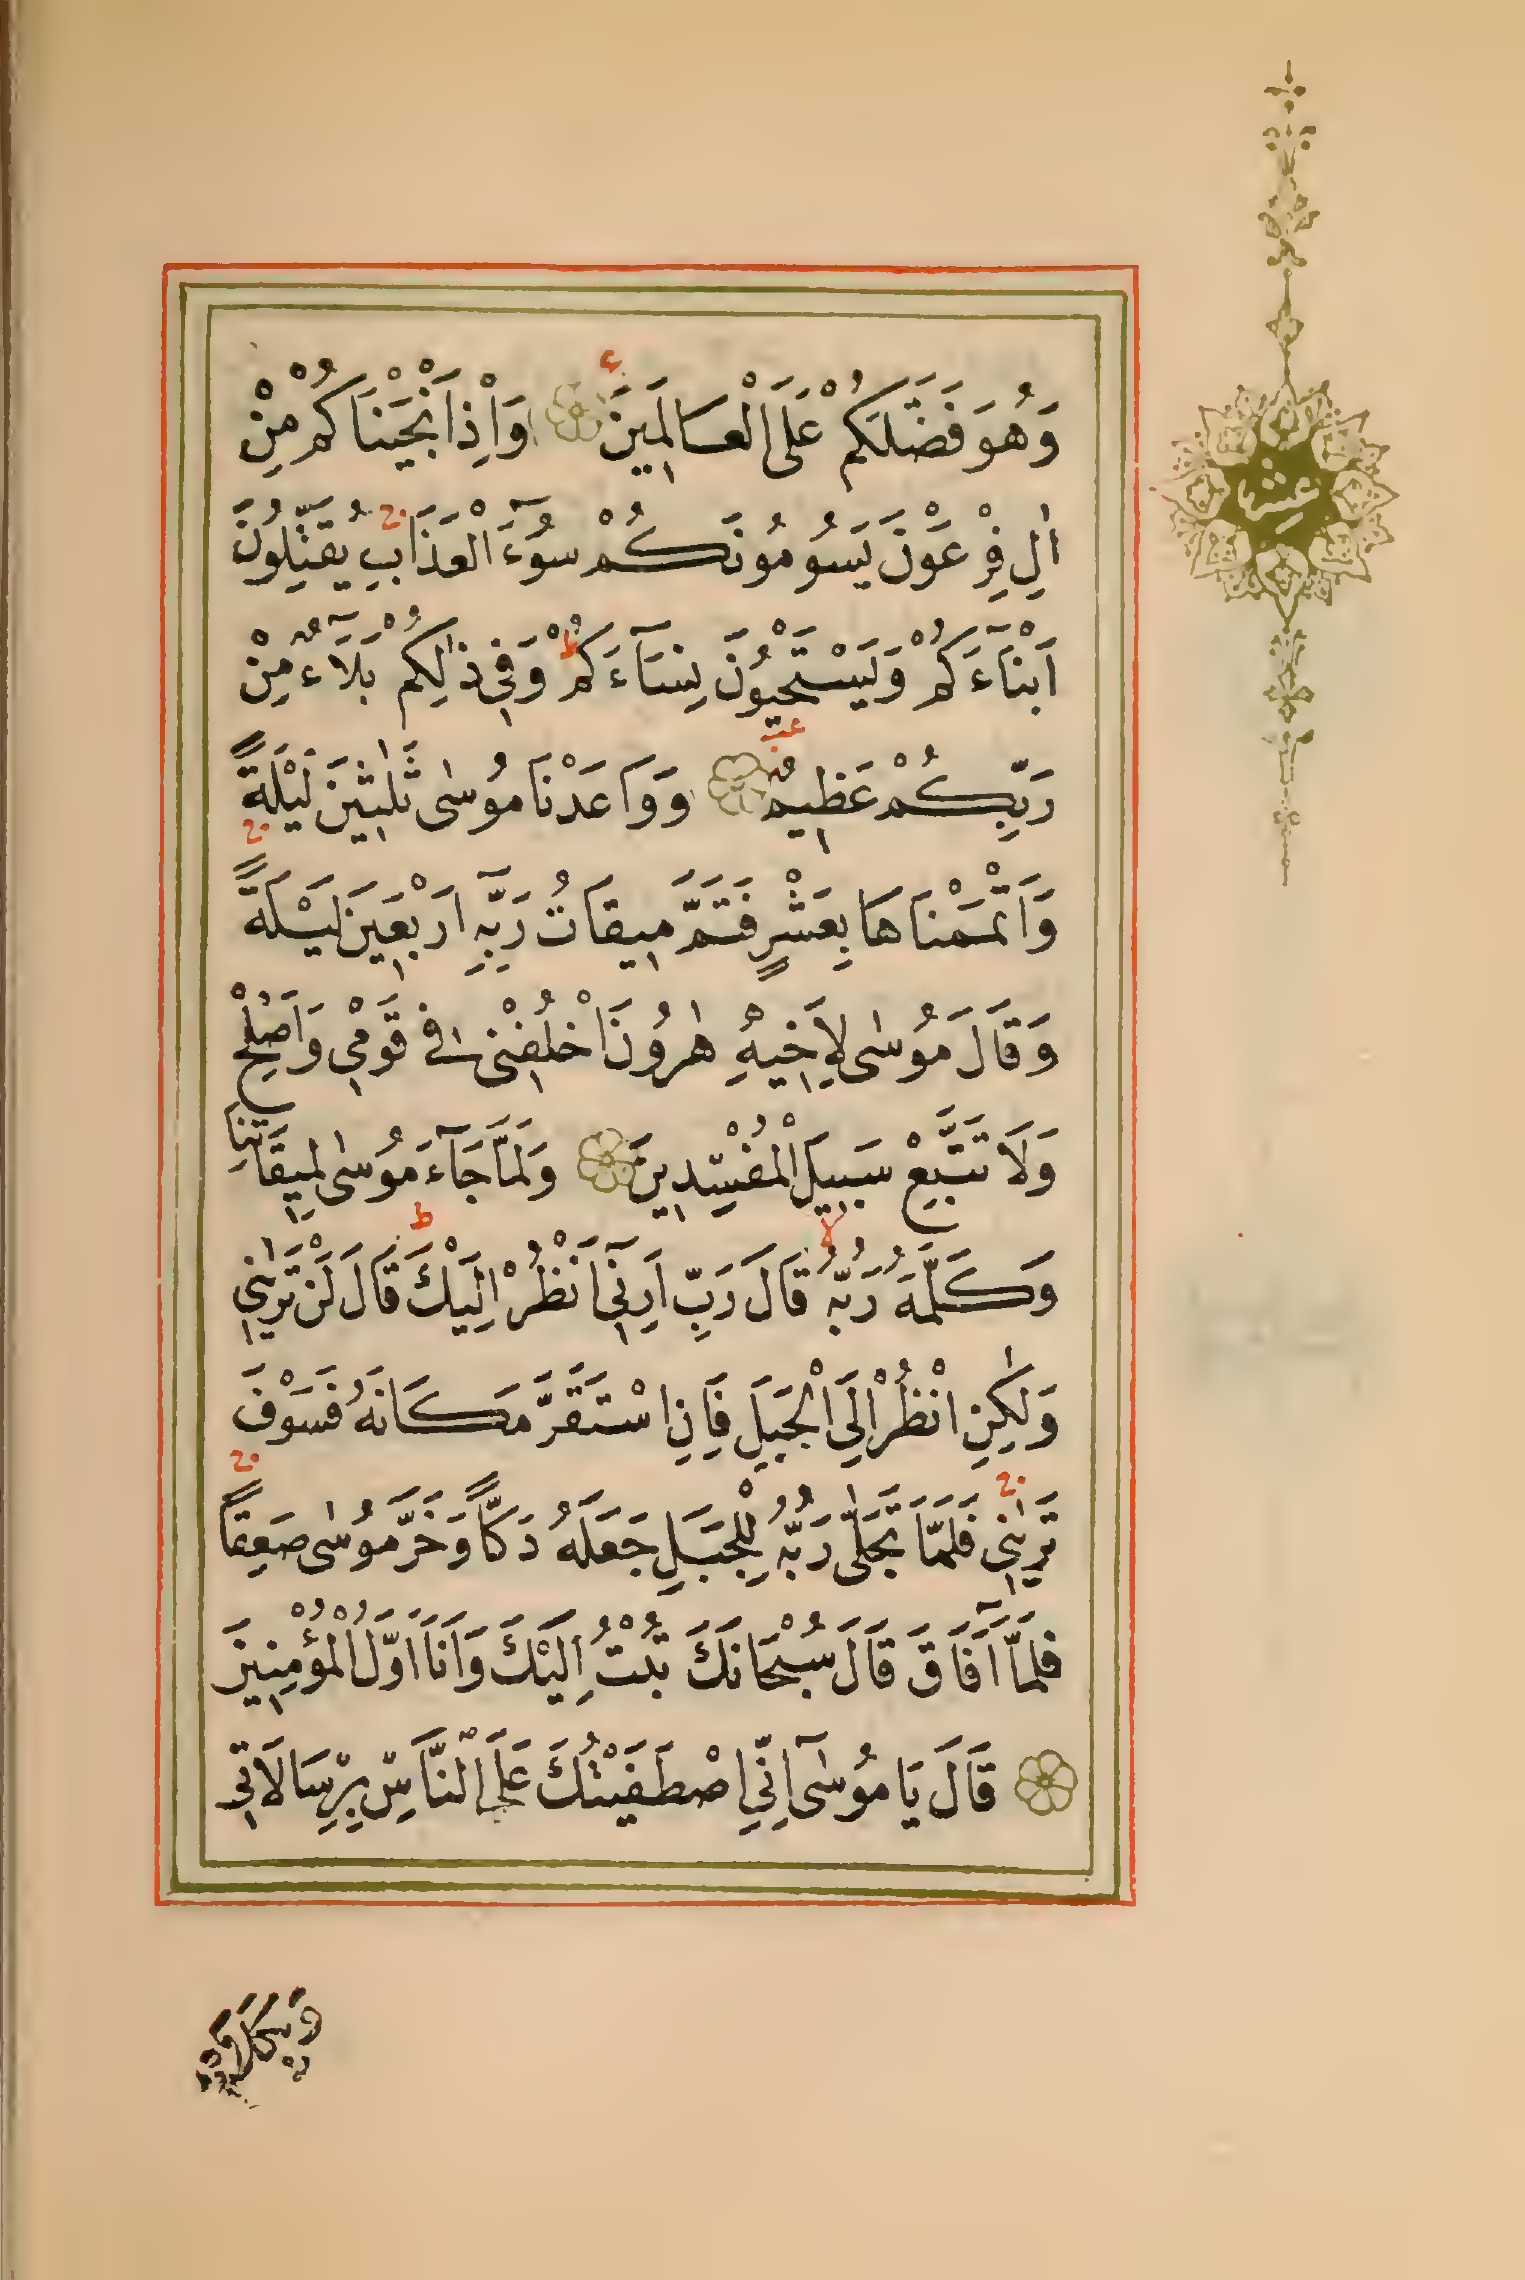 وَهُوَ فَضَّلَكُمْ عَلَى الْعَالَمِينَ وَاِذْ اَنْجَيْنَاكُمْ مِنْ
اٰلِ فِرْعَوْنَ يَسُومُونَكُمْ سُوٓءَ الْعَذَابِ يُقَتِّلُونَ
اَبْنَآءَكُمْ وَيَسْتَحْيُونَ نِسَآءَكُمْ وَفِي ذٰلِكُمْ بَلَآءٌ مِنْ
رَبِّكُمْ عَظِيمٌ وَوَاعَدْنَا مُوسٰى ثَلٰثِينَ لَيْلَةً
وَاَتْمَمْنَاهَا بِعَشْرٍ فَتَمَّ مِيقَاتُ رَبِّهِ اَرْبَعِينَ لَيْلَةً
وَقَالَ مُوسٰى لِاَخِيهِ هٰرُونَ اخْلُفْنِي فِي قَوْمِي وَاَصْلِحْ
وَلَا تَتَّبِعْ سَبِيلَ الْمُفْسِدِينَ وَلَمَّا جَآءَ مُوسٰى لِمِيقَاتِنَا
وَكَلَّمَهُ رَبُّهُ قَالَ رَبِّ اَرِنِٓي اَنْظُرْ اِلَيْكَ قَالَ لَنْ تَرٰينِي
وَلٰكِنِ انْظُرْ اِلَى الْجَبَلِ فَاِنِ اسْتَقَرَّ مَكَانَهُ فَسَوْفَ
تَرٰينِي فَلَمَّا تَجَلّٰى رَبُّهُ لِلْجَبَلِ جَعَلَهُ دَكًّا وَخَرَّ مُوسٰى صَعِقًا
فَلَمَّٓا اَفَاقَ قَالَ سُبْحَانَكَ تُبْتُ اِلَيْكَ وَاَنَا اَوَّلُ الْمُؤْمِنِينَ
قَالَ يَا مُوسٰٓى اِنِّي اصْطَفَيْتُكَ عَلَى النَّاسِ بِرِسَالَاتِي
وَبِكَلَامِي